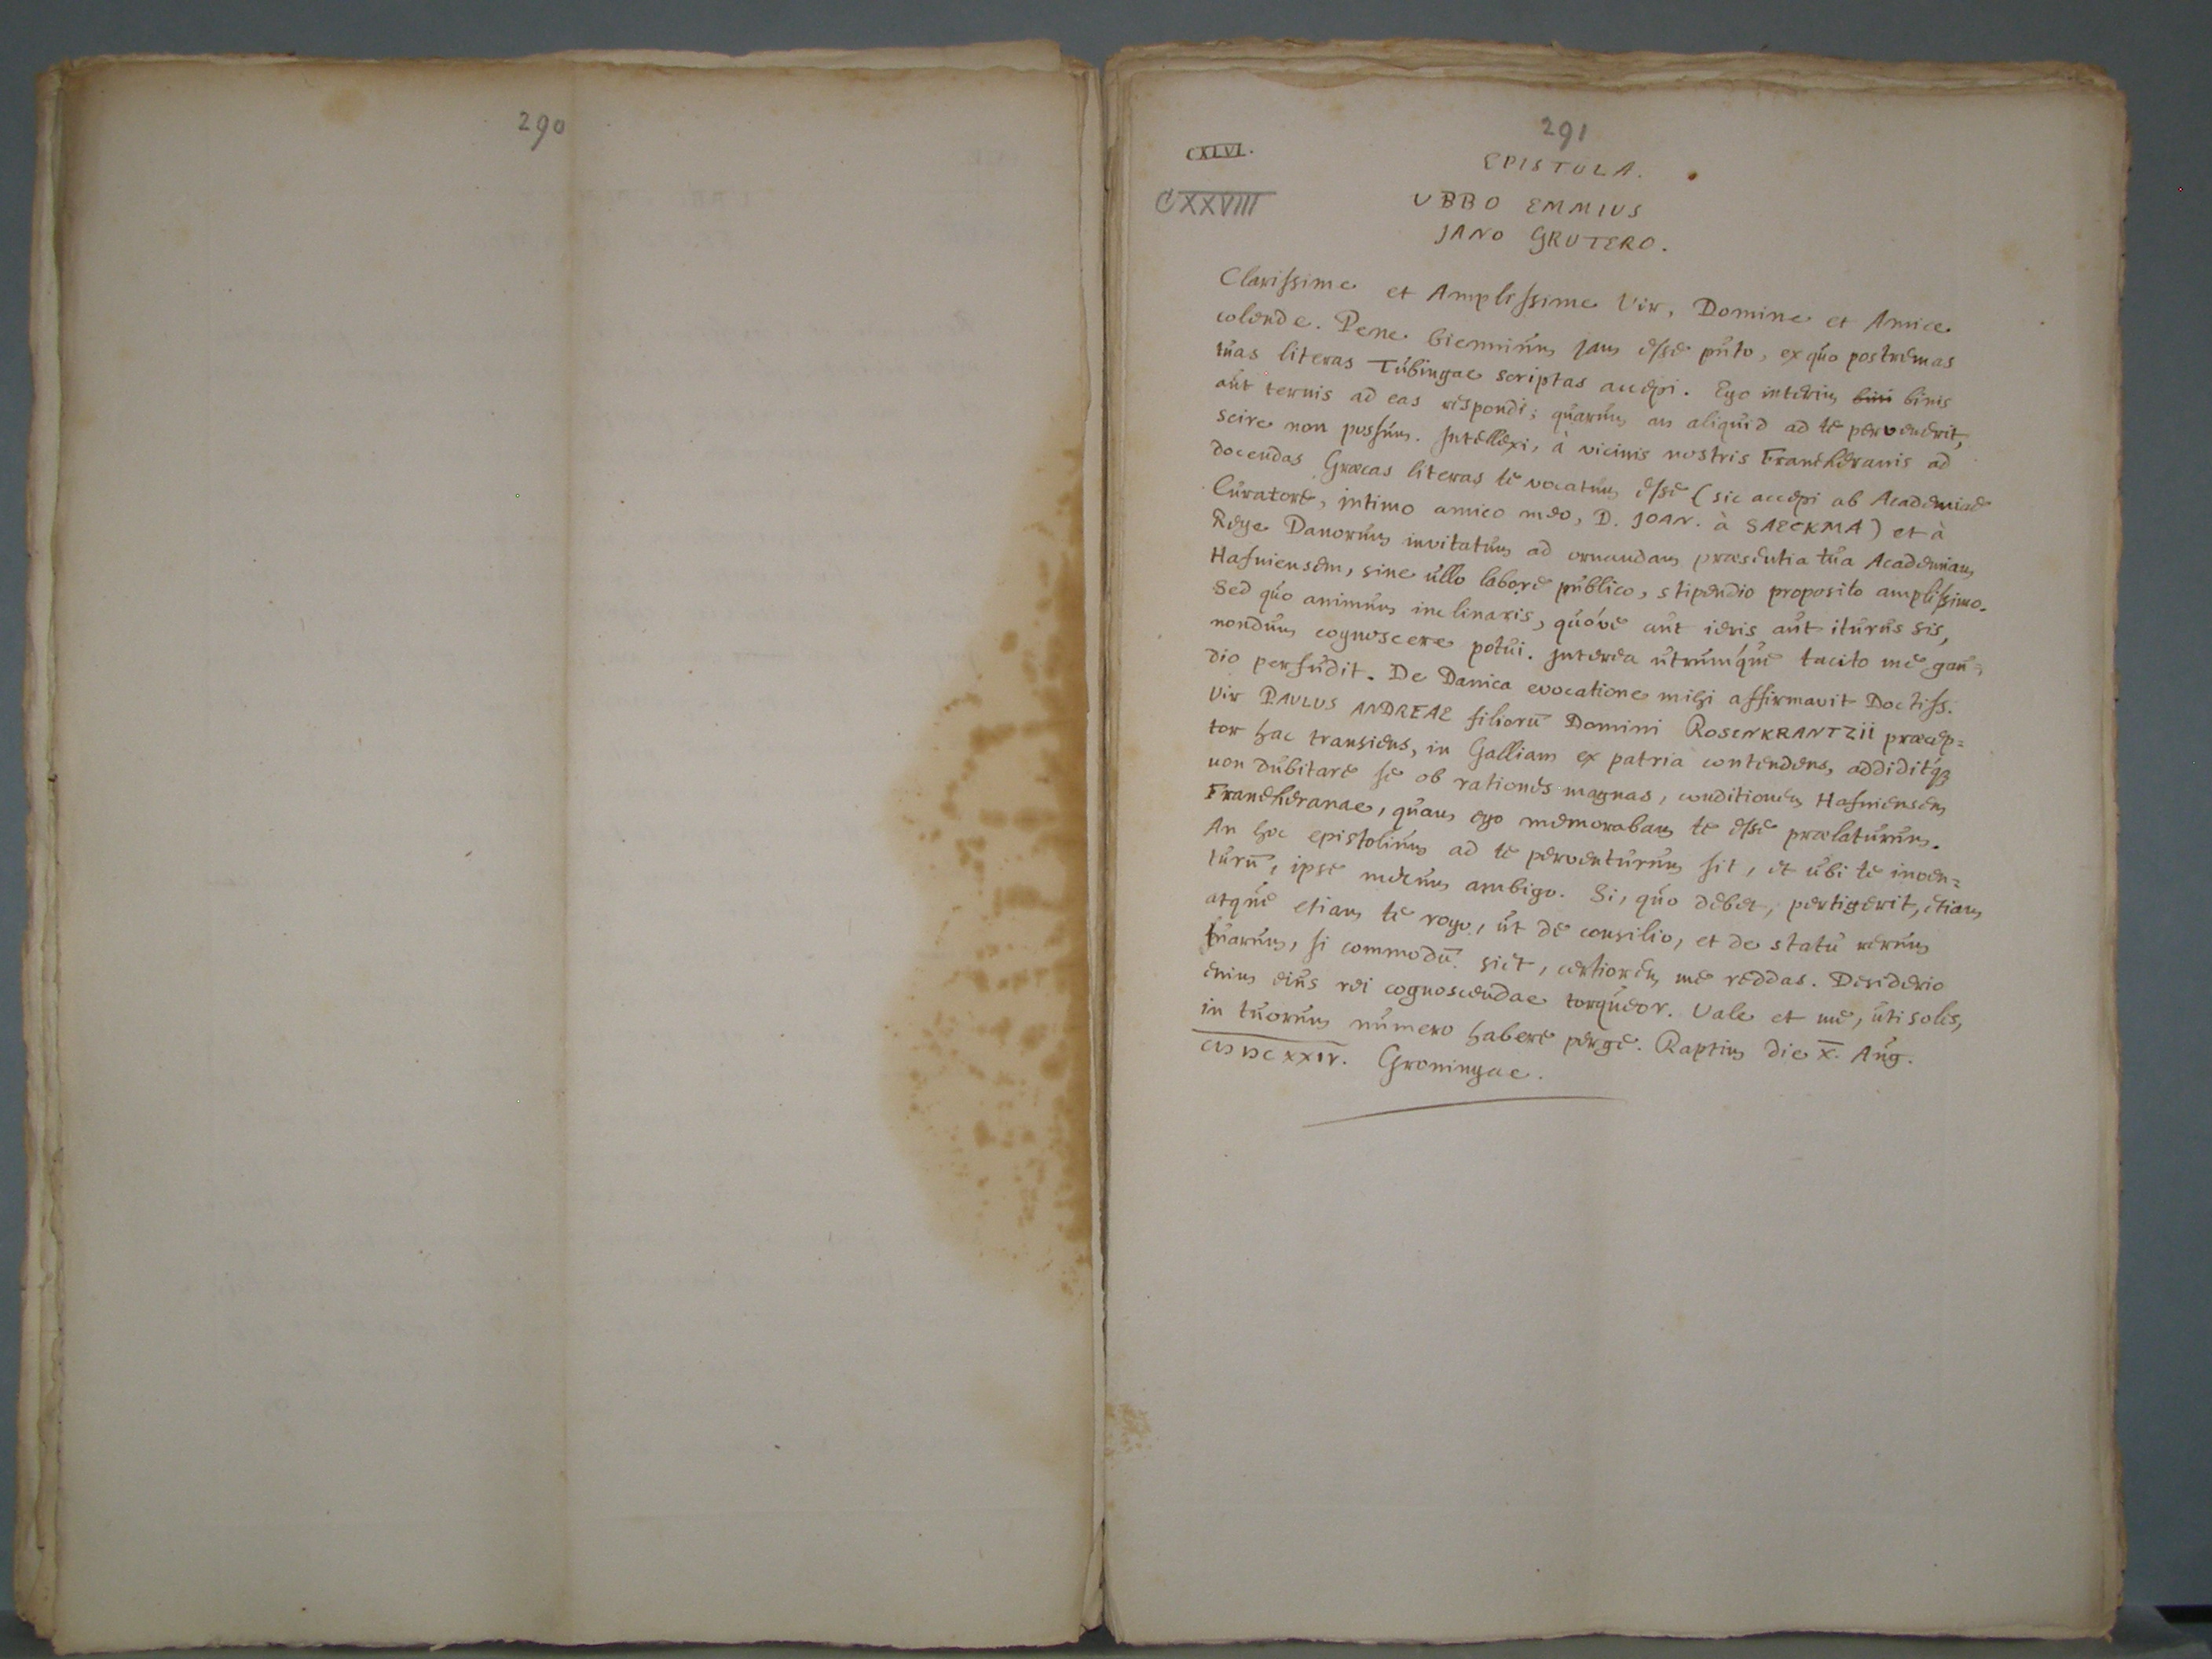 290
291
CXLVI.
CXXVIII
EPISTOLA.
UBBO EMMIUS
JANO GRUTERO.
Clarissime et Amplissime Vir, Domine et Amice
colende. Pene biennium jam esse puto, ex quo postremas
tuas literas Tubingae scriptas accepi. Ego interim bini binis
aut ternis ad eas respondi; quarum an aliquid ad te pervenerit,
scire non possum. Intellexi, à vicinis nostris Franekeranis ad
docendas Græcas literas te vocatum esse (sic accepi ab Academiae
Curatore, intimo amico meo, D. JOAN. à SAECKMA) et à
Rege Danorum invitatum ad ornandam præsentia tua Academiam
Hafniensem, sine ullo labore publico, stipendio proposito amplissimo.
Sed quo animum inclinaris, quóve aut ieris aut iturus sis,
nondum cognoscere potui. Interea utrumque tacito me gau=
dio perfudit. De Danica evocatione mihi affirmavit Doctiss.
Vir PAULUS ANDREAE filiorū Domini ROSENKRANTZII præcep=
tor hac transiens, in Galliam ex patria contendens, addiditq;
non dubitare se ob rationes magnas, conditionem Hafniensem
Franekeranae, quam ego memorabam te esse prælaturum.
An hoc epistolium ad te perventurum sit, et ubi te inven=
turū, ipse mecum ambigo. Si, quo debet, pertigerit, etiam
atque etiam te rogo, ut de consilio, et de statu rerum
tuarum, si commodū siet, certiorem me reddas. Desiderio
enim eius rei cognoscendae torqueor. Vale et me, uti soles,
in tuorum numero habere perge. Raptim die X. Aug.
CIƆ IƆC XXIV. Groningae.